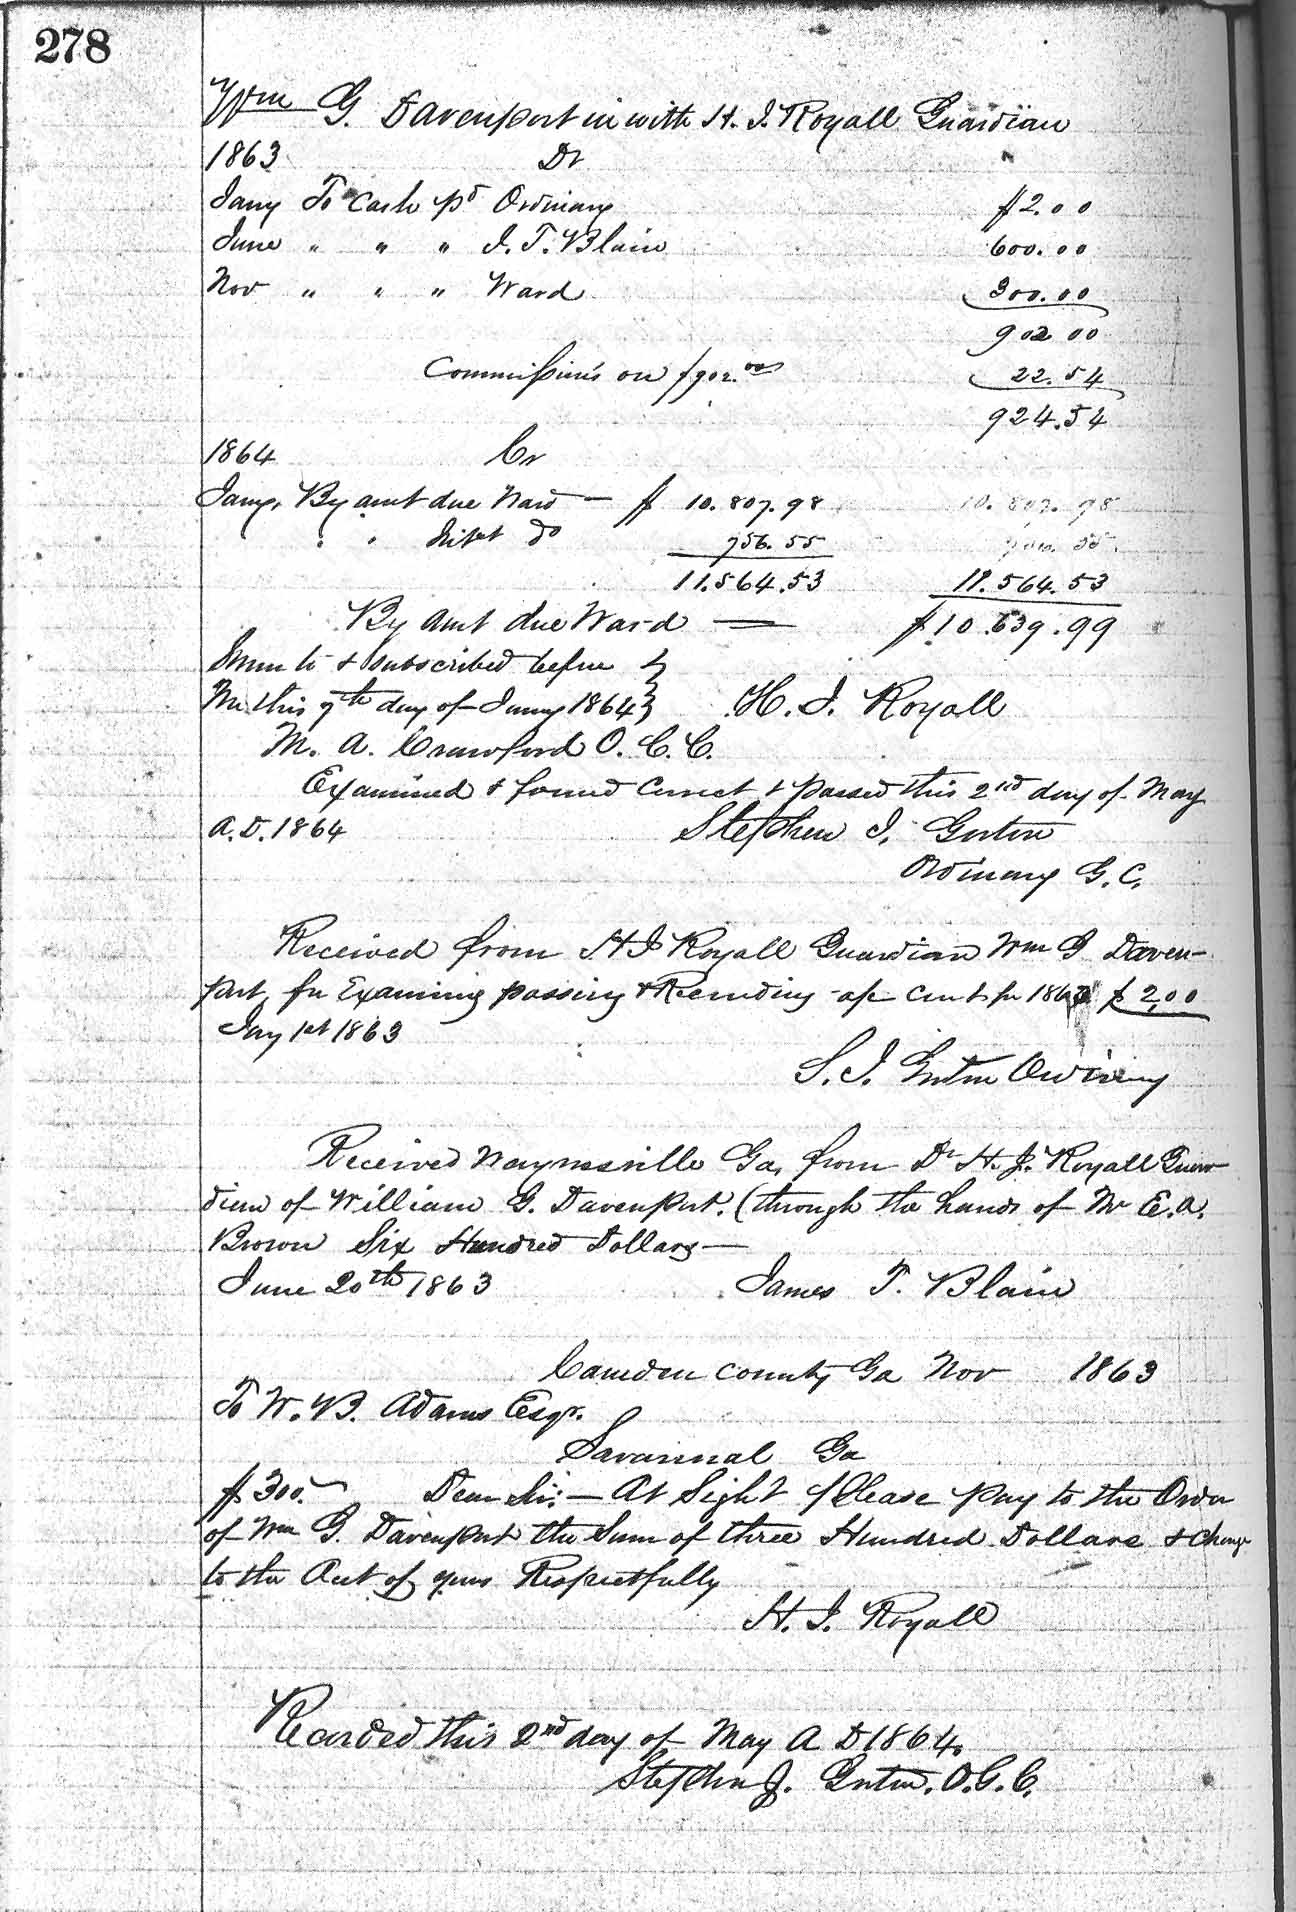 278
Wm G. Davenport in with H. J. Royall Guardian
1863 Dr
Jany To cash pd Ordinary $2.00
June " " " J. T. Blain 600.00
Nov " " " Ward 300.00
902 00
Commissions on $902.00 22.54
924.54
1864 Cr
Jany. By amt due Ward — $ 10.807.98 10.807.98
" " Intst do 756.55 756.55
11.564.53 11.564.53
By Amt due Ward — $10.639.99
Sworn to & subscribed before
Me this 7th day of Jany 1864 H. J. Royall
M. A. Crawford O. C. C.
Examined & found Correct & passed this 2nd day of May
A.D. 1864 Stephen J. Gorton
Ordinary G. C.
Received from H J Royall Guardian Wm G Daven-
port, for Examining passing & Recording a/c Curt for 186 $2.00
Jay 1st 1863
S. J. Gorton Ordinary
Received Waynesville Ga, from Dr H. J. Royall Guar-
dian of William G. Davenport. (through the hands of Mr E. A.
Brown Six Hundred Dollars —
June 20th 1863 James T. Blain
Camden County Ga Nov 1863
To W. B. Adams Esqr.
Savannah Ga
$300. Dear Sir: — At Sight Please pay to the Order
of Wm G. Davenport the Sum of three Hundred Dollars & Charge
to the Acct of yours Respectfully
H. J. Royall
Recorded this 2nd day of May A D 1864.
Stephen J. Gorton. O. G. C.